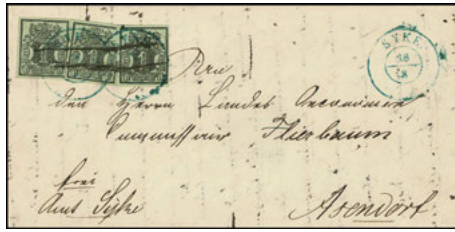 SYKE
18
/8
An
den Herrn Landes Oeconomie
Commissair Stierbaum
frei
Amt Syke
Asendorf